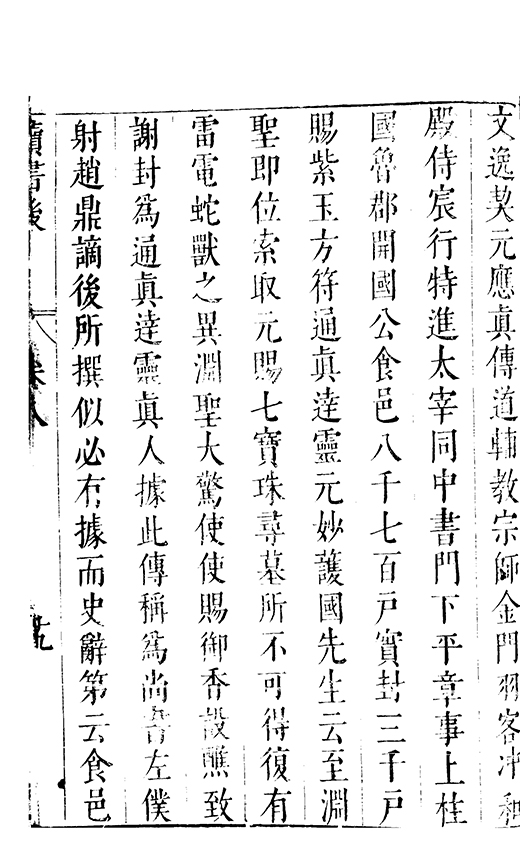 文逸契元應眞傳道輔教宗師金門羽客冲和
殿侍宸行特進太宰同中書門下平章事上柱
國魯郡開國公食邑八千七百戸實封三千戸
賜紫玉方符通眞達靈元妙護國先生云至淵
聖即位索取元賜七寶珠尋墓所不可得復有
雷電蛇獸之異淵聖大驚使使賜御香設醮致
謝封爲通眞達靈眞人據此傳稱爲尚書左僕
射趙鼎謫後所撰似必有據而史辭第云食邑
讀書後 卷八 九